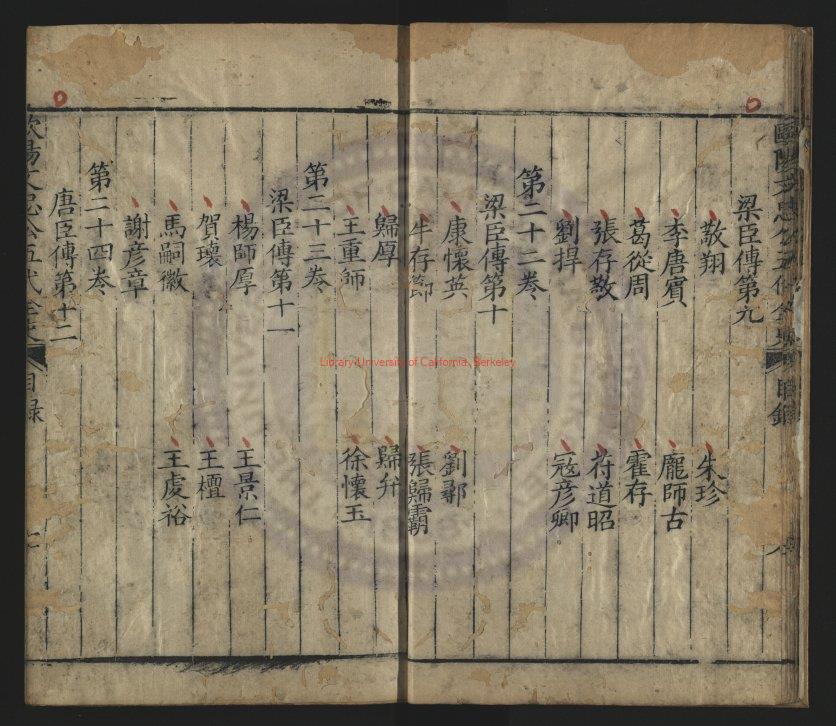 歐陽文忠公五代全史 目錄
梁臣傳第九
敬翔 朱珍
李唐賓 龐師古
葛從周 霍存
張存敬 苻道昭
劉捍 寇彦卿
第二十二卷
梁臣傳第十
康懷英 劉鄩
牛存節 張歸霸
歸厚 歸弁
王重師 徐懷玉
第二十三卷
梁臣傳第十一
楊師厚 王景仁
賀瓌 王檀
馬嗣徽 王虔裕
謝彦章
第二十四卷
唐臣傳第十二
目録
Library University of California, Berkeley